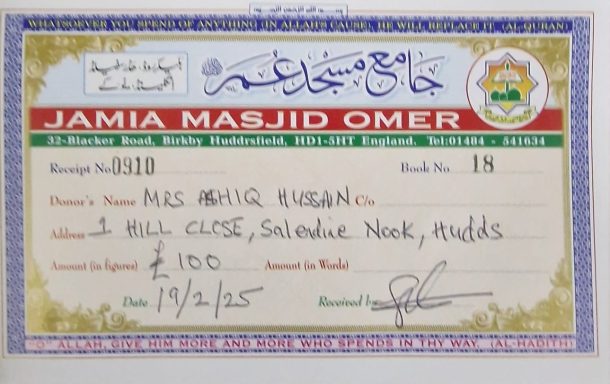 WHATSOEVER YOU SPEND OF ANYTHING (IN ALLAH'S CAUSE), HE WILL REPLACE IT. (AL-QURAN)
جامع مسجد عمر
JAMIA MASJID OMER
32-Blacker Road, Birkby Huddrsfield, HD1-5HT England. Tel:01484 - 541634
Receipt No 0910 Book No 18
Donor's Name MRS ASHIQ HUSSAIN C/o
Address 1 HILL CLOSE, Salendine Nook, Hudds
Amount (in figures) £100 Amount (in Words)
Date 19/2/25 Received by
"O" ALLAH, GIVE HIM MORE AND MORE WHO SPENDS IN THY WAY. (AL-HADITH)